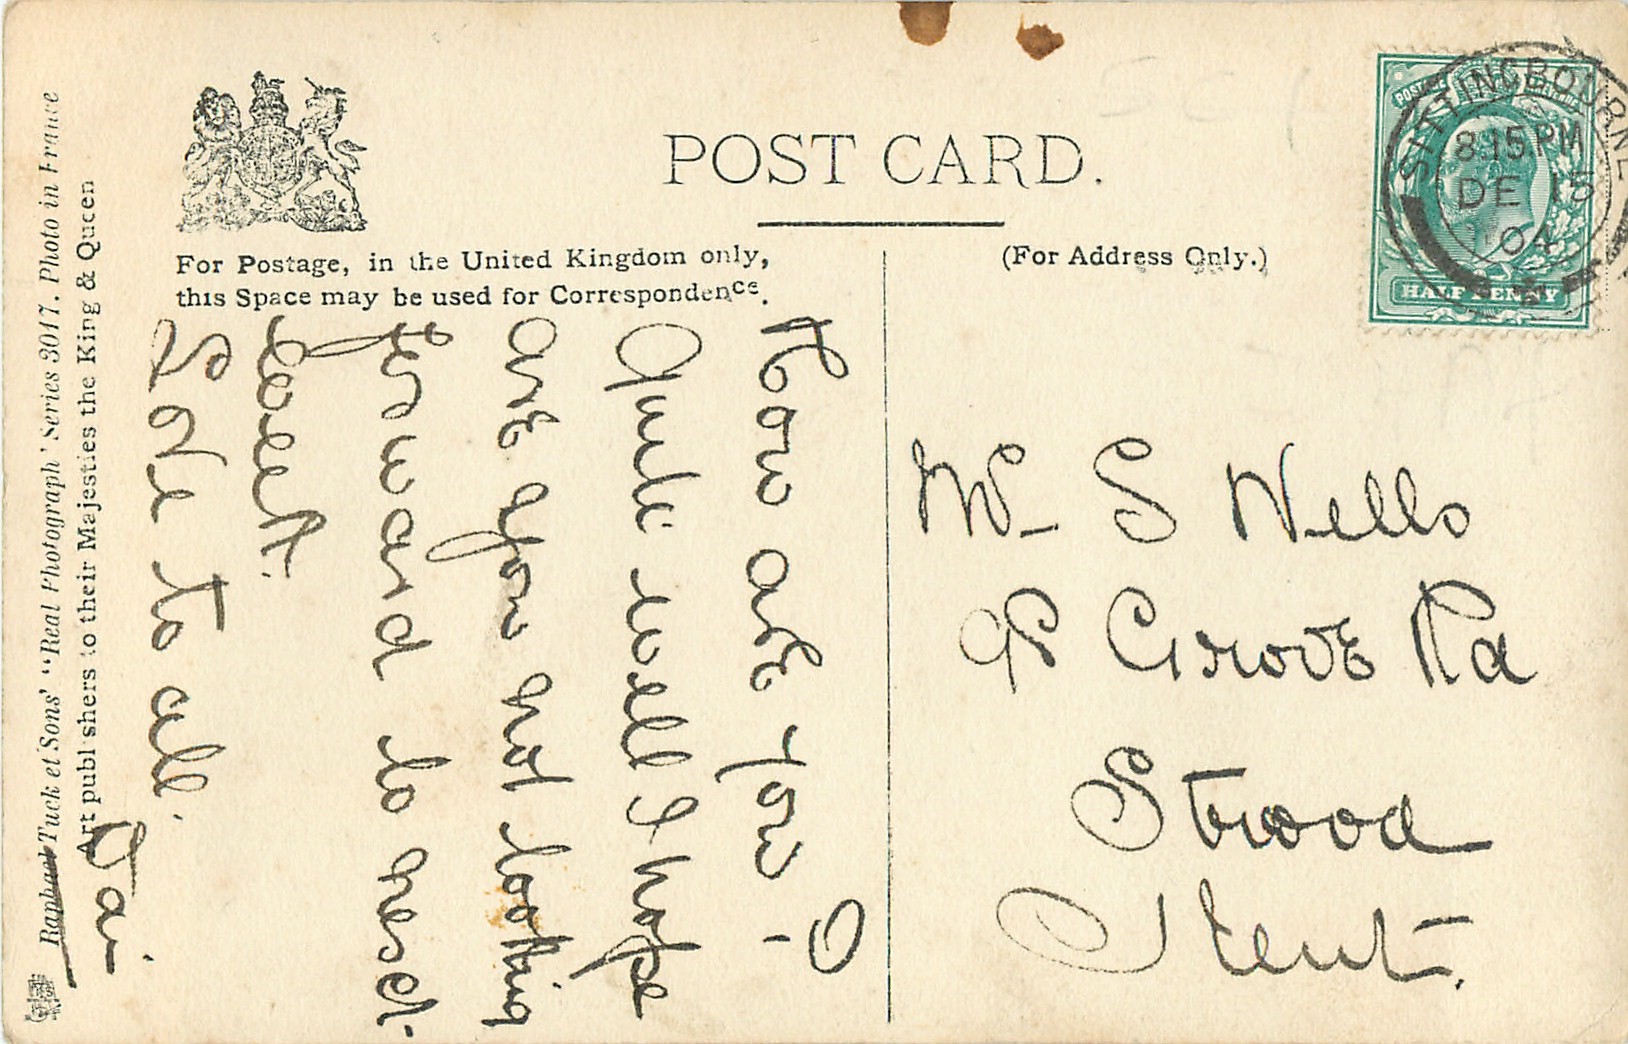 POST CARD.
For Postage, in the United Kingdom only,
this Space may be used for Correspondence.
(For Address Only.)
POSTAGE REVENUE
HALFPENNY
SITTINGBOURNE
8.15 PM
DE 15
04
How are you -
Quite well I hope
are you not looking
forward to next
week.
Love to all.
Dai
Mr S Wells
Grove Rd
Strood
Kent.
Raphael Tuck et Sons' "Real Photograph' Series 3017. Photo in France
Art publishers to their Majesties the King & Queen